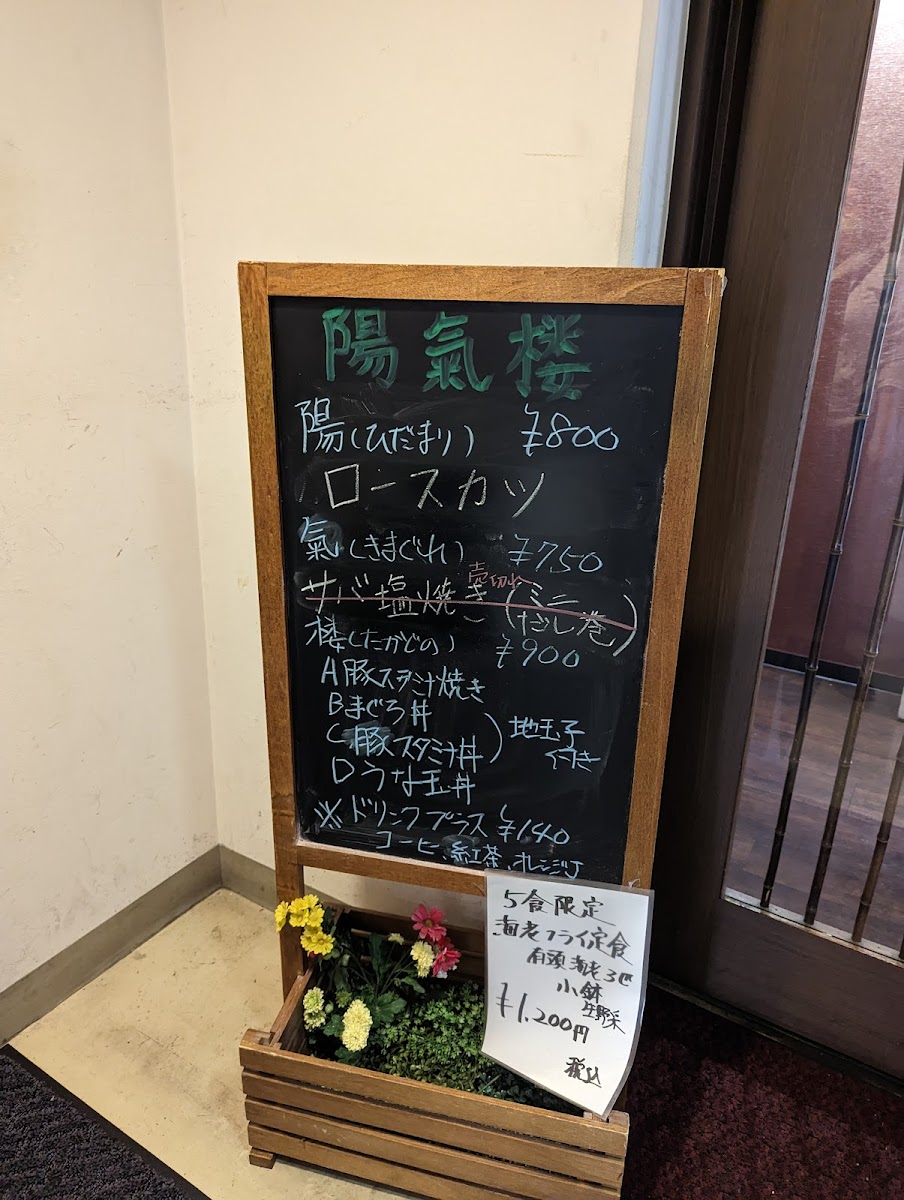 陽氣楼
陽(ひだまり) ¥800
ロースカツ
氣(きまぐれ) ¥750
売切れ
サバ塩焼き(ミニだし巻)
楼(たかどの) ¥900
A豚スタミナ焼き
Bまぐろ丼
C豚スタミナ丼)地玉子
Dうな玉丼 つき
※ドリンクプラス¥140
コーヒー、紅茶、オレンジJ
5食限定
海老フライ定食
有頭海老3匹
小鉢
生野菜
¥1,200円
税込